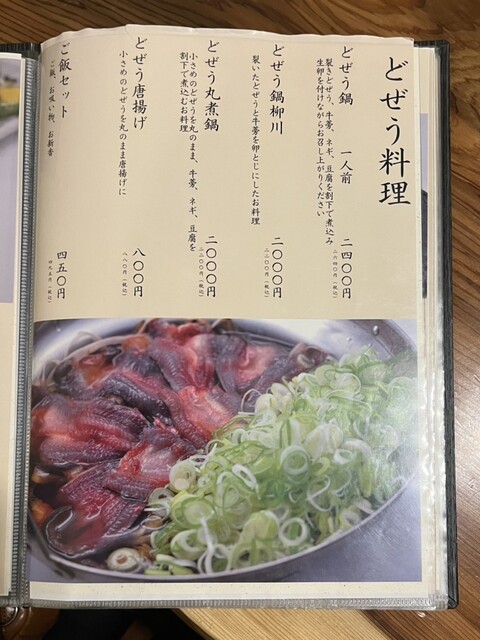 どぜう料理
どぜう鍋 一人前 二四〇〇円
二六四〇円(税込)
裂きどぜう、牛蒡、ネギ、豆腐を割下で煮込み
生卵を付けながらお召し上がりください
どぜう鍋柳川 二〇〇〇円
二二〇〇円(税込)
裂いたどぜうと牛蒡を卵とじにしたお料理
どぜう丸煮鍋 二〇〇〇円
二二〇〇円(税込)
小さめのどぜうを丸のまま、牛蒡、ネギ、豆腐を
割下で煮込むお料理
どぜう唐揚げ 八〇〇円
八八〇円(税込)
小さめのどぜうを丸のまま唐揚げに
ご飯セット 四五〇円
四九五円(税込)
ご飯、お吸い物、お新香